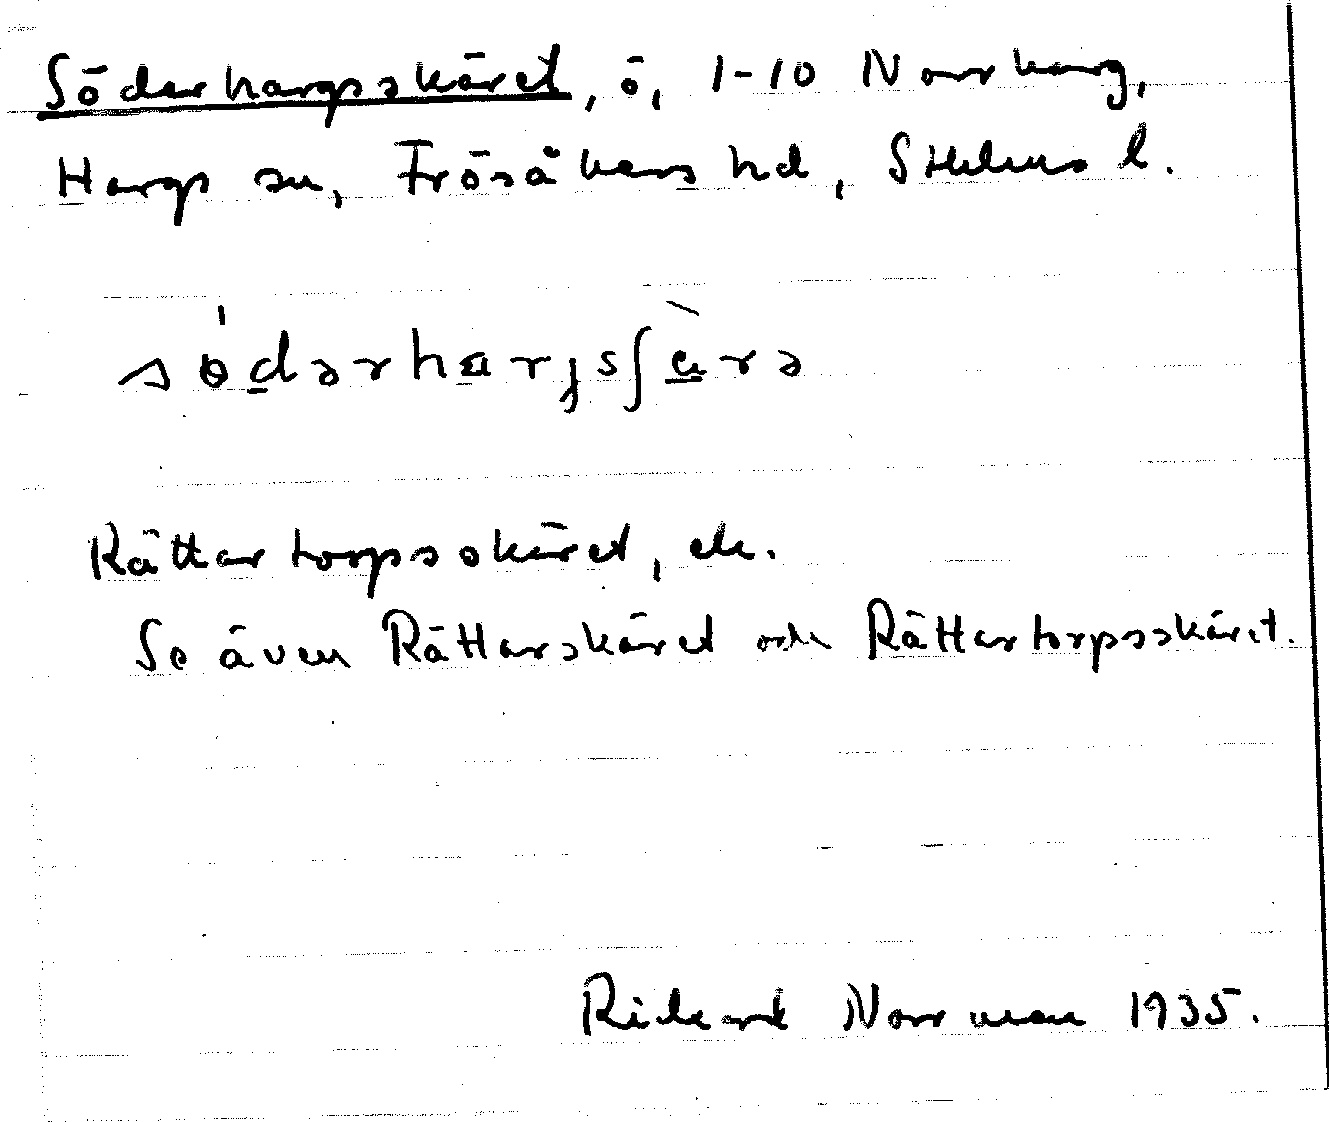 Söderhargsskäret, ö, 1-10 Norrharg,
Hargs sn, Frösåkers hd, Sthlms l.
södərharjsʃärə
Rättartorpsskäret, ek.
Se även Rättarskäret och Rättartorpsskäret.
Rickard Norrman 1935.